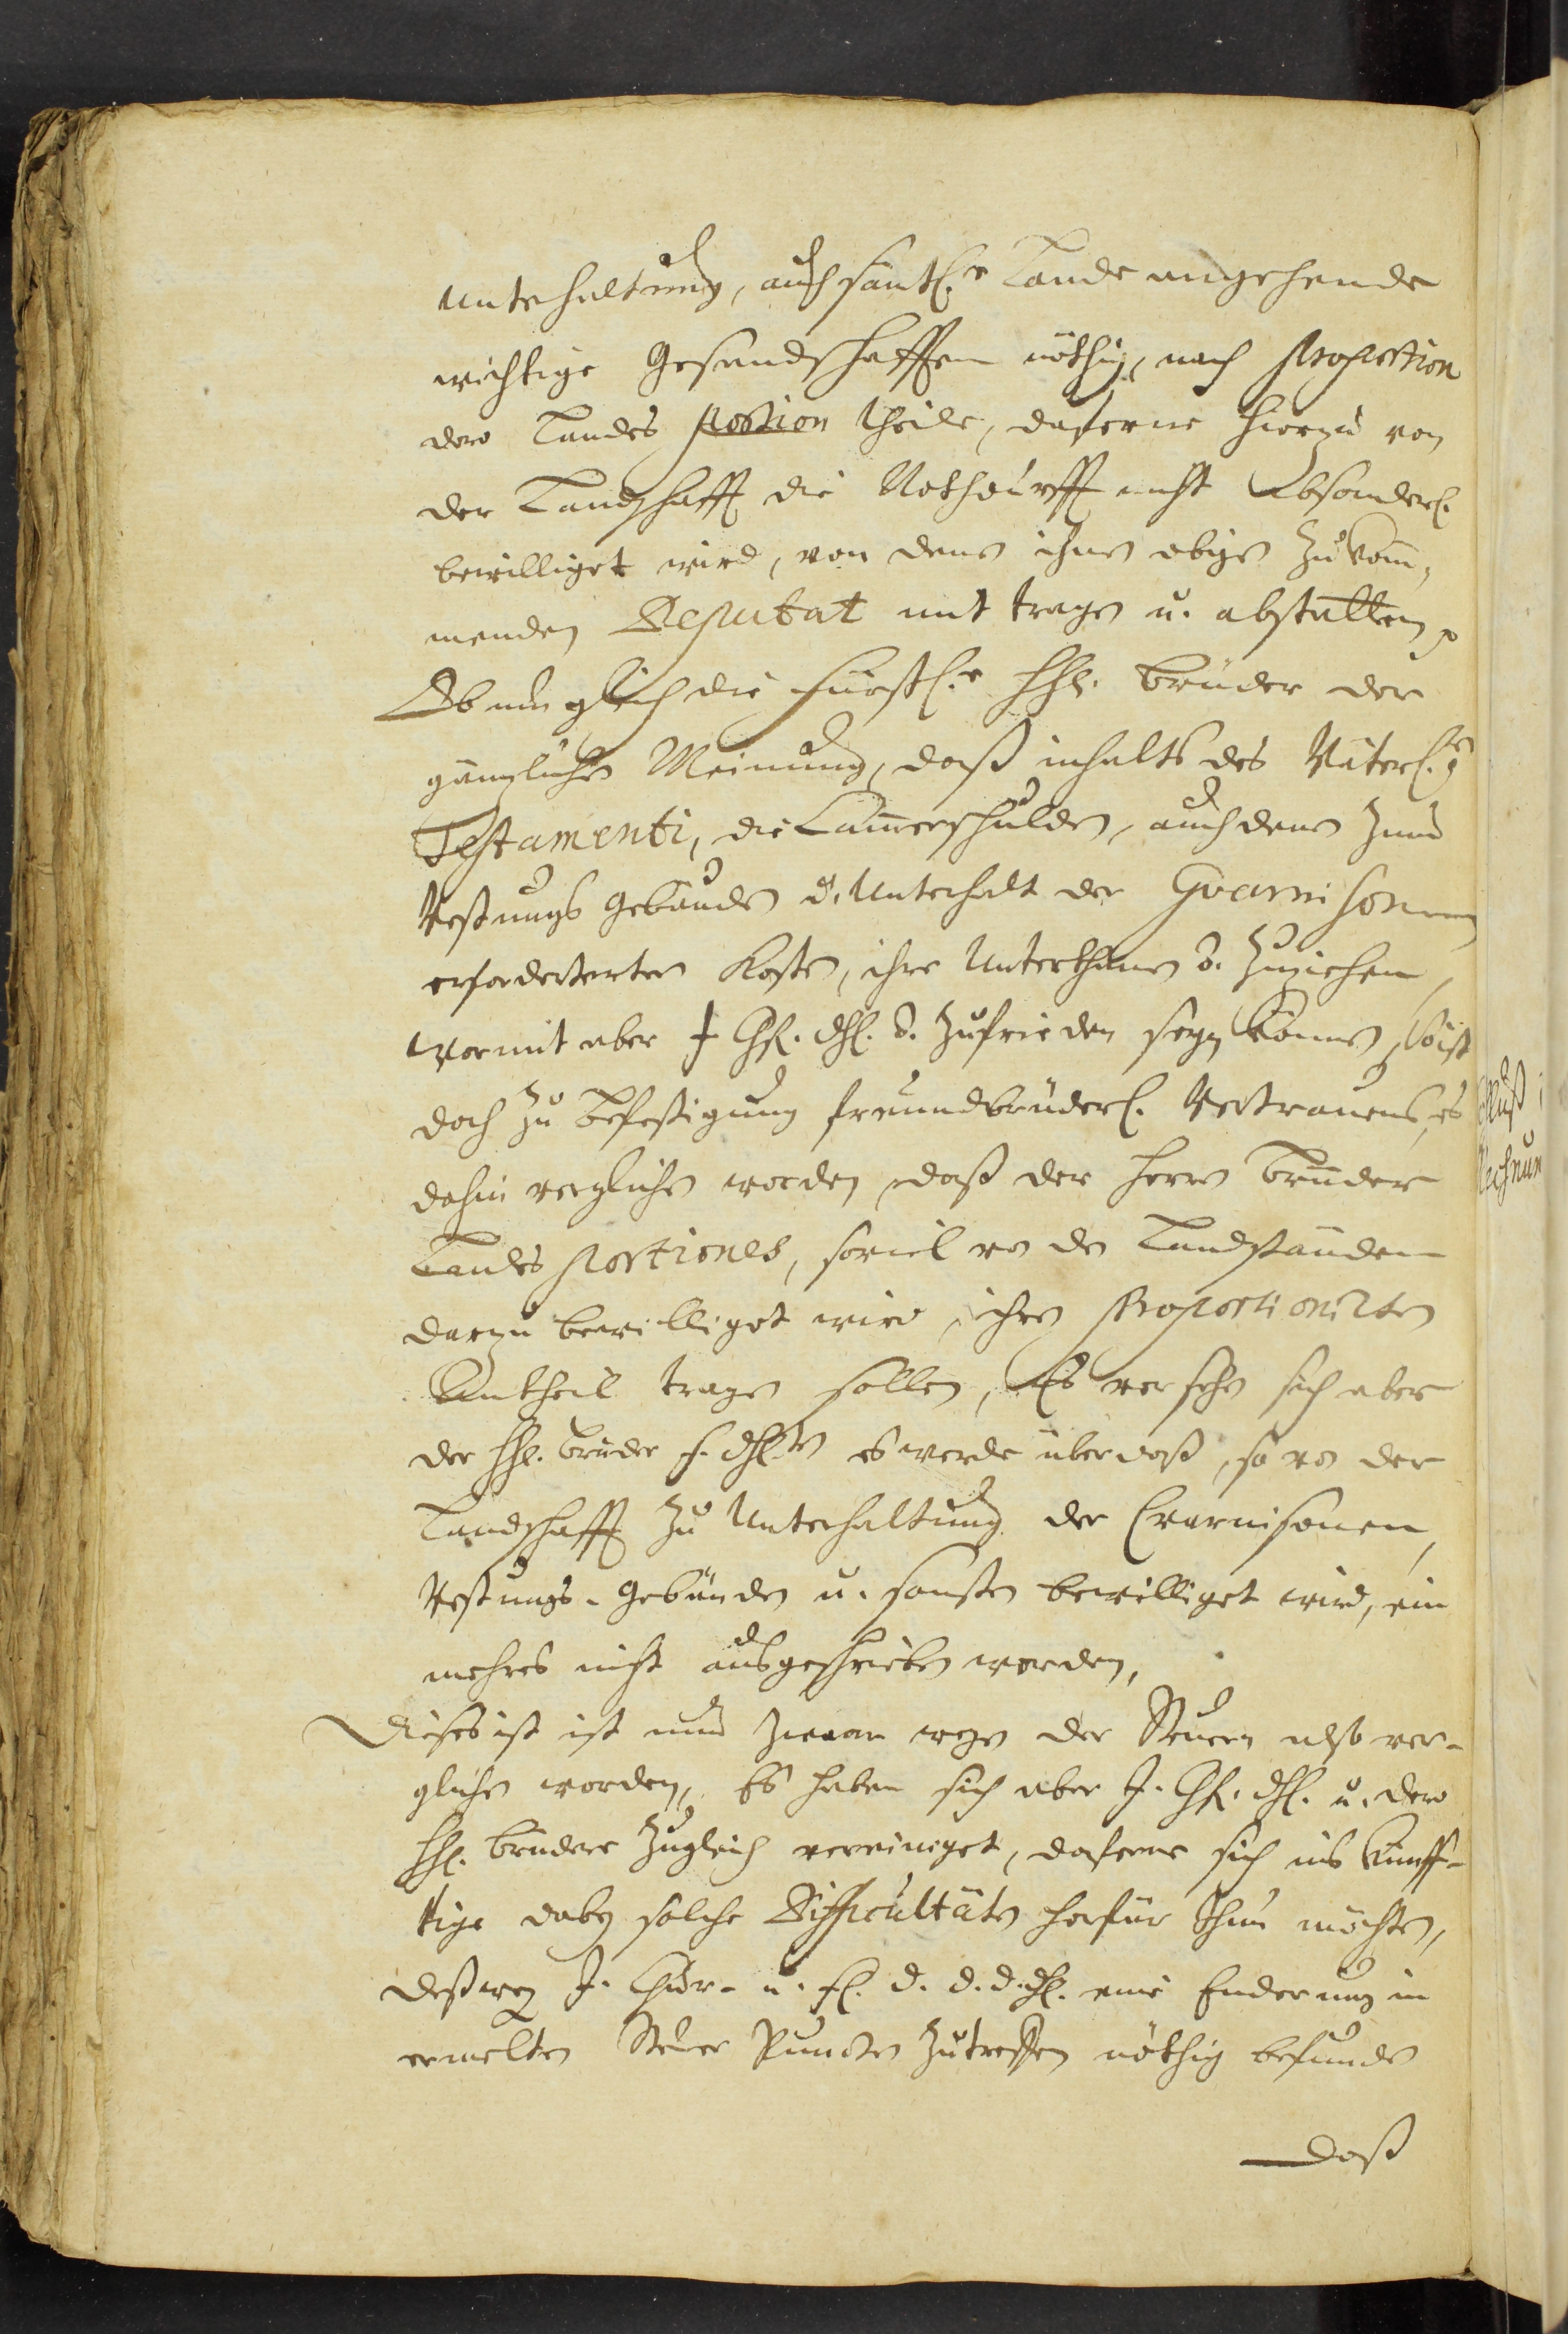 Unterhaltung, auch sämtl.e Lande angehende
wichtige Gesandschafften nöthig, nach Proportion
dero Landes Portion theile, daferne hierzu von
der Landschafft die Nothdurfft nicht Absonderl.
bewilliget wird, von denen ihnen obigen zukom¬
menden Deputat mit tragen u. abstatten,
Ob nun gleich die Fürstl.e HH. Brüder der
gäntzlichen Meinung, daß inhalts des Väterl.en
Testamenti, die Cammerschulden, auch denen zum
Vestungs Gebäuden u. Unterhalt der Gvarnisonen
erforderten Kosten, ihre Unterthanen zuziehen,
wormit aber J Chf. dhl. zufrieden seyn können, so ist
doch zu befestigung freundbrüderl. Vertrauens, es
dahin verglichen worden, daß der Herren Brüder
Landes Portiones, soviel von den Landständen
darzu bewilliget wird, ihren Proportionirten
Antheil tragen sollen, Es versehen sich aber
der HH. Brüder f. dhl.en es werde über daß, so von der
Landschafft zu Unterhaltung der Gvarnisonen,
Vestungs-Gebäuden u. sonsten bewilliget wird, ein
mehres nicht ausgeschrieben werden,
Dieses ist ist nun zwaar wegen der Steuern also ver-
glichen worden, Es haben sich aber J. Chf. dhl. u. dero
HH. Brüdere zugleich vereiniget, daferne sich ins künff-
tige dabey solche Difficultäten herfür thun möchten,
deßweg J. Chur- u. fl. d. d. d. dhl. eine Enderung in
ermelten Steuer Puncten zutreffen nöthig befunden
daß